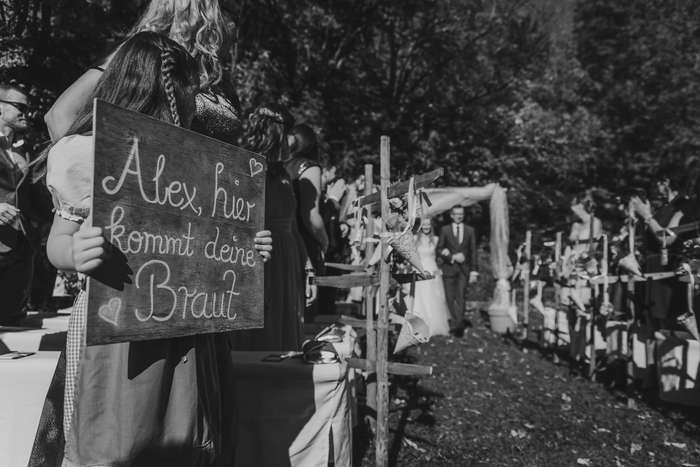 Alex, hier
kommt deine
Braut